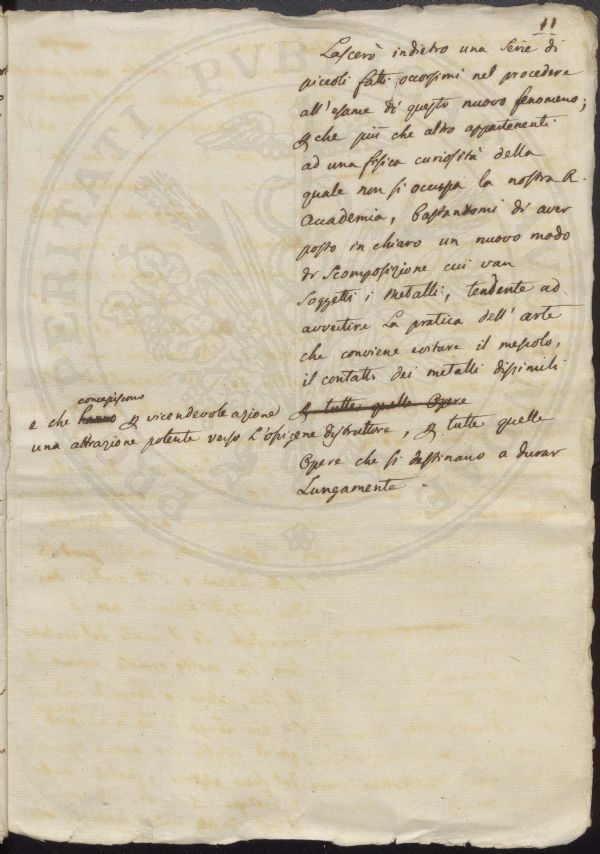 11
Lascerò indietro una serie di
piccoli fatti occorsimi nel procedere
all'esame di questo nuovo fenomeno;
e che più che altro appartenenti
ad una fisica curiosità della
quale non si occupa la nostra R.
Accademia, bastandomi di aver
posto in chiaro un nuovo modo
di Scomposizione cui van
Soggetti i Metalli, tendente ad
avvertire la pratica dell'arte
che conviene evitare il mescolo,
il contatto dei metalli dissimili
e tutte quelle Opere
concepiscono
e che hanno p vicendevole azione
una attrazione potente verso l'ossigene distruttore, e tutte quelle
Opere che si destinano a durar
Lungamente.
PUB